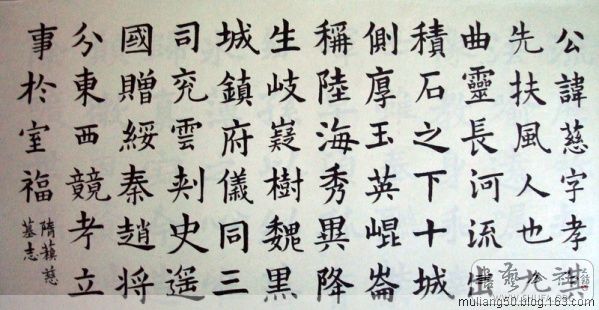 公諱慈字孝祺
先扶風人也九
曲靈長河流出
積石之下十城
側厚玉英崐崙
稱陸海秀異降
生岐嶷樹魏黑
城鎮府儀同三
司兖雲刾史遥
國贈綏秦趙将
分東西競孝立
事於室福
隋蘓慈
墓志
muliang50.blog.163.com